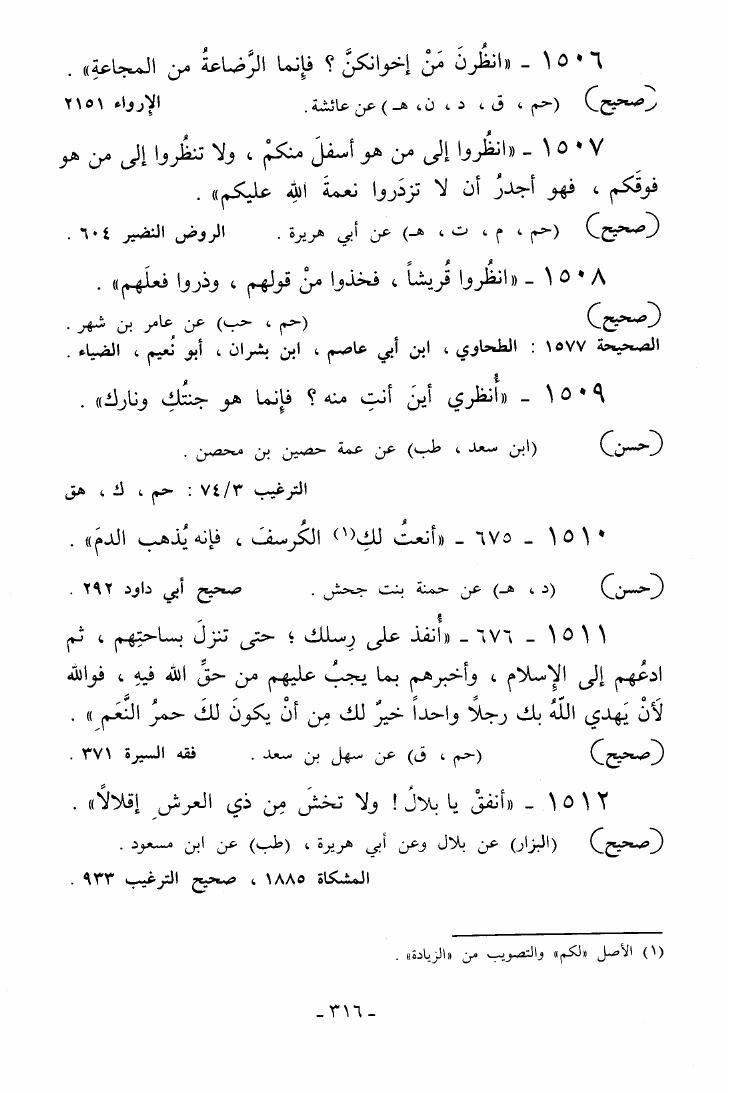 ١٥٠٦ - «انظُرنَ مَنْ إخوانكنَّ ؟ فإنما الرَّضاعةُ من المجاعةِ» .
(صحيح) (حم ، ق ، د ، ن، هـ) عن عائشة. الإرواء ٢١٥١
١٥٠٧ - «انظُروا إلى من هو أسفلَ منكمْ ، ولا تنظُروا إلى من هو
فوقَكم ، فهو أجدرُ أن لا تزدَروا نعمةَ اللهِ عليكم» .
(صحيح) (حم ، م ، ت ، هـ) عن أبي هريرة . الروض النضير ٦٠٤ .
١٥٠٨ - «انظُروا قُريشاً ، فخذوا منْ قولهم ، وذروا فعلَهم» .
(صحيح) (حم ، حب) عن عامر بن شهر .
الصحيحة ١٥٧٧ : الطحاوي ، ابن أبي عاصم ، ابن بشران ، أبو نُعيم ، الضياء .
١٥٠٩ - «أُنظري أينَ أنتِ منه ؟ فإنما هو جنتُكِ ونارك» .
(حسن) (ابن سعد ، طب) عن عمة حصين بن محصن .
الترغيب ٧٤/٣ : حم ، ك ، هق
١٥١٠ - ٦٧٥ - «أنعتُ لكِ(١) الكُرسفَ ، فإنه يُذهب الدمَ» .
(حسن) (د ، هـ) عن حمنة بنت جحش . صحيح أبي داود ٢٩٢ .
١٥١١ - ٦٧٦ - «أُنفذ على رِسلك ؛ حتى تنزلَ بساحتِهم ، ثم
ادعُهم إلى الإِسلام ، وأخبرهم بما يجبُ عليهم من حقِّ الله فيهِ ، فوالله
لَأنْ يَهدي اللّهُ بك رجلاً واحداً خيرٌ لك مِن أنْ يكونَ لكَ حمرُ النَّعَمِ» .
(صحيح) (حم ، ق) عن سهل بن سعد . فقه السيرة ٣٧١ .
١٥١٢ - «أنفقْ يا بلالُ ! ولا تخشَ مِن ذي العرشِ إقلالاً» .
(صحيح) (البزار) عن بلال وعن أبي هريرة ، (طب) عن ابن مسعود .
المشكاة ١٨٨٥ ، صحيح الترغيب ٩٣٣ .
(١) الأصل «لكم» والتصويب من «الزيادة» .
- ٣١٦ -